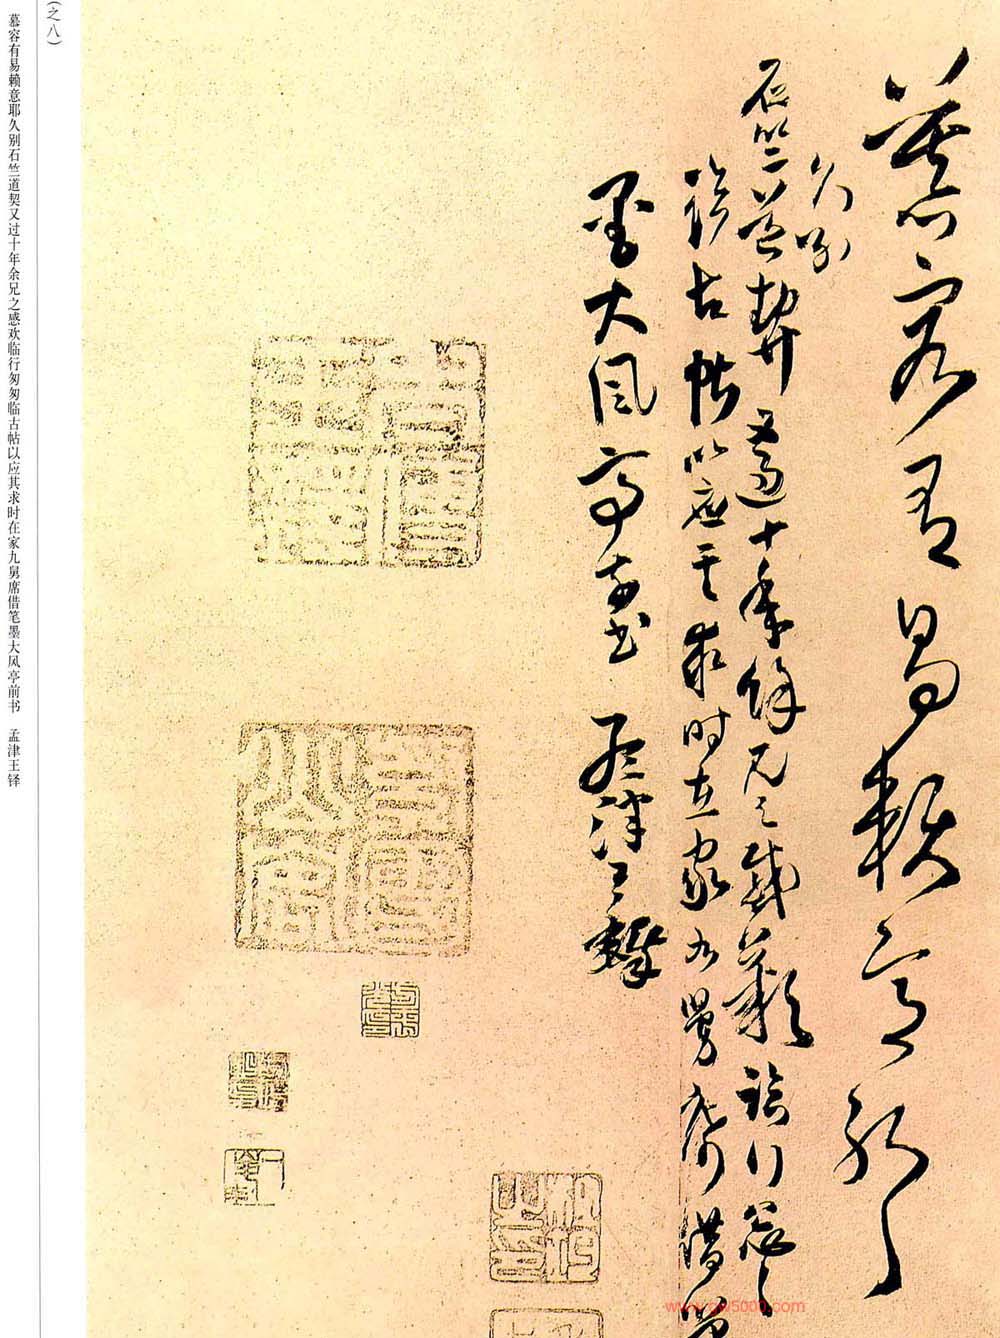 慕容有易赖意耶
久別
石竺道契又過十年餘兄之感歡臨行匆匆
臨古帖以應其求時在家九舅席借墨
墨大風亭前書 孟津王鐸
(之八)
慕容有易赖意耶久别石竺道契又过十年余兄之感欢临行匆匆临古帖以应其求时在家九舅席借笔墨大风亭前书 孟津王铎
www.gw5000.com